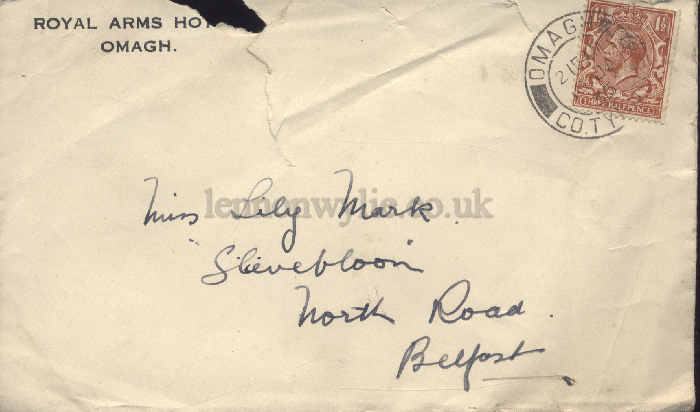 ROYAL ARMS HOT
OMAGH.
OMAGH
215
CO.TY
1½
THREE HALFPENCE
lennonwylie.co.uk
Miss Lily Mark.
"Slievebloom
North Road.
Belfast